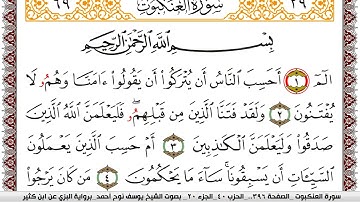 ٦٩ سُورَةُ العَنكَبُوتِ ٢٩
بِسْمِ ٱللَّهِ ٱلرَّحْمَٰنِ ٱلرَّحِيمِ
الٓمٓ ١ أَحَسِبَ ٱلنَّاسُ أَن يُتْرَكُوٓا۟ أَن يَقُولُوٓا۟ ءَامَنَّا وَهُمُۥ لَا
يُفْتَنُونَ ٢ وَلَقَدْ فَتَنَّا ٱلَّذِينَ مِن قَبْلِهِمُۥ فَلَيَعْلَمَنَّ ٱللَّهُ ٱلَّذِينَ
صَدَقُوا۟ وَلَيَعْلَمَنَّ ٱلْكَٰذِبِينَ ٣ أَمْ حَسِبَ ٱلَّذِينَ يَعْمَلُونَ
ٱلسَّيِّـَٔاتِ أَن يَسْبِقُونَا سَآءَ مَا يَحْكُمُونَ ٤ مَن كَانَ يَرْجُوا۟
سورة العنكبوت _ الصفحة ٣٩٦_ الحزب ٤٠_ الجزء ٢٠_ بصوت الشيخ يوسف نوح أحمد _برواية البزي عن ابن كثير